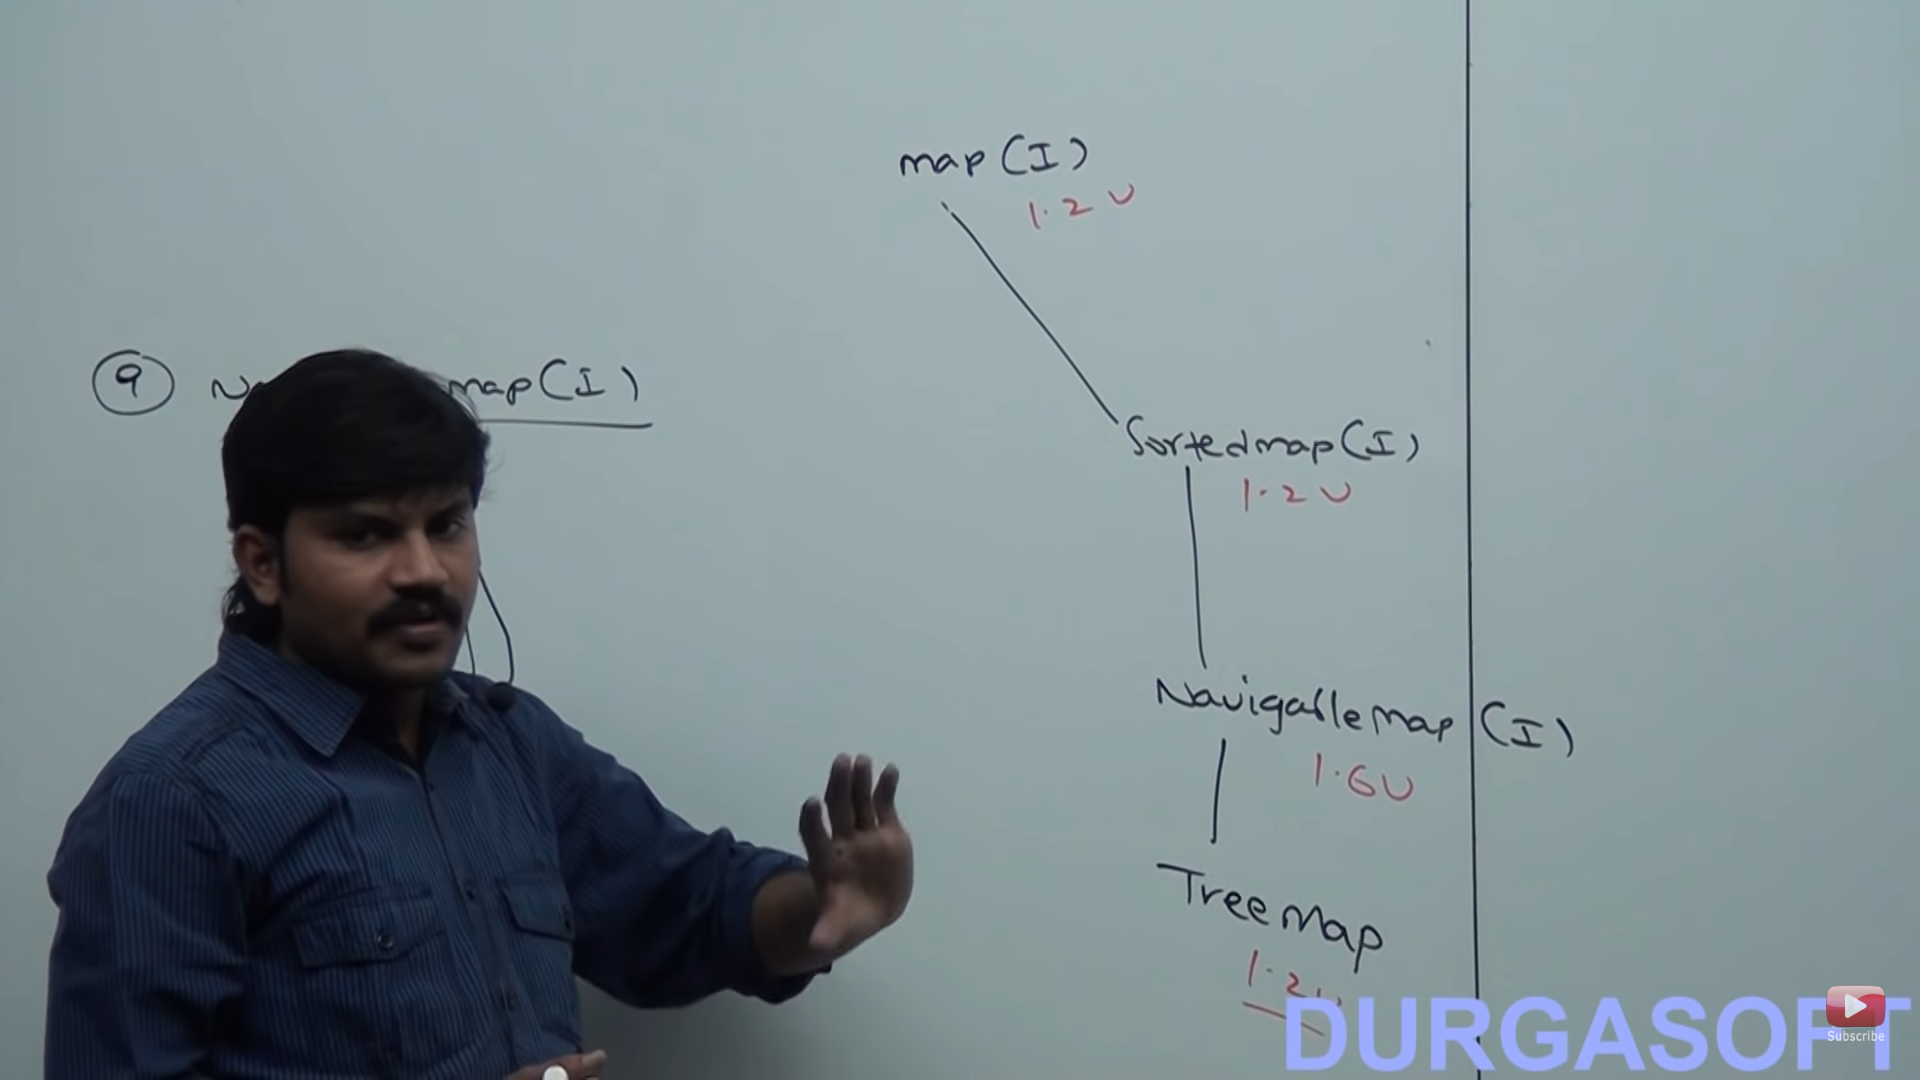 map (I)
1.2 v
9 map (I)
Sortedmap (I)
1.2 v
NavigableMap (I)
1.6 v
TreeMap
1.2 v
DURGASOFT
Subscribe